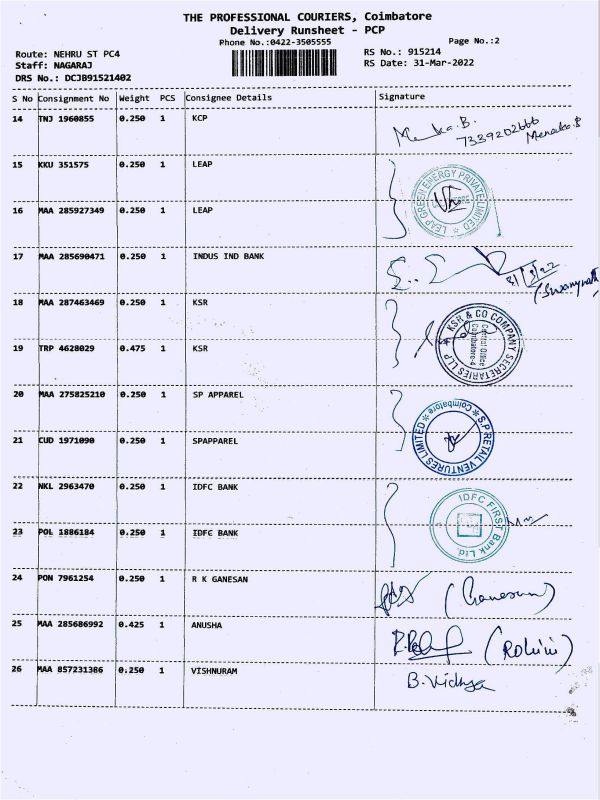 THE PROFESSIONAL COURIERS, Coimbatore
Delivery Runsheet - PCP
Phone No.:0422-3505555
Page No.:2
Route: NEHRU ST PC4
RS No.: 915214
Staff: NAGARAJ
RS Date: 31-Mar-2022
DRS No.: DCJB91521402
S No Consignment No Weight PCS Consignee Details Signature
14 TNJ 1960855 0.250 1 KCP
Menaka.B.
7339202666
Menaka.B
15 KKU 351575 0.250 1 LEAP
LEAP GREEN ENERGY PRIVATE LIMITED
16 MAA 285927349 0.250 1 LEAP
17 MAA 285690471 0.250 1 INDUS IND BANK
31/3/22
18 MAA 287463469 0.250 1 KSR
KSR & CO COMPANY SECRETARIES LLP
Central Office
Coimbatore-4
19 TRP 4628029 0.475 1 KSR
20 MAA 275825210 0.250 1 SP APPAREL
S.P RETAIL VENTURES LIMITED
Coimbatore
21 CUD 1971090 0.250 1 SPAPPAREL
22 NKL 2963470 0.250 1 IDFC BANK
IDFC FIRST Bank Ltd.
23 POL 1886184 0.250 1 IDFC BANK
24 PON 7961254 0.250 1 R K GANESAN
(Ganesan)
25 MAA 285686992 0.425 1 ANUSHA
(Rohini)
26 MAA 857231386 0.250 1 VISHNURAM
B. Vidhya